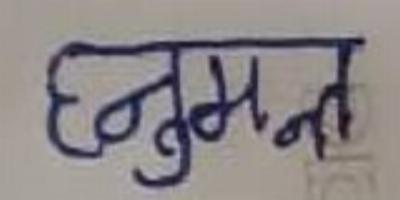 हनुमन्त